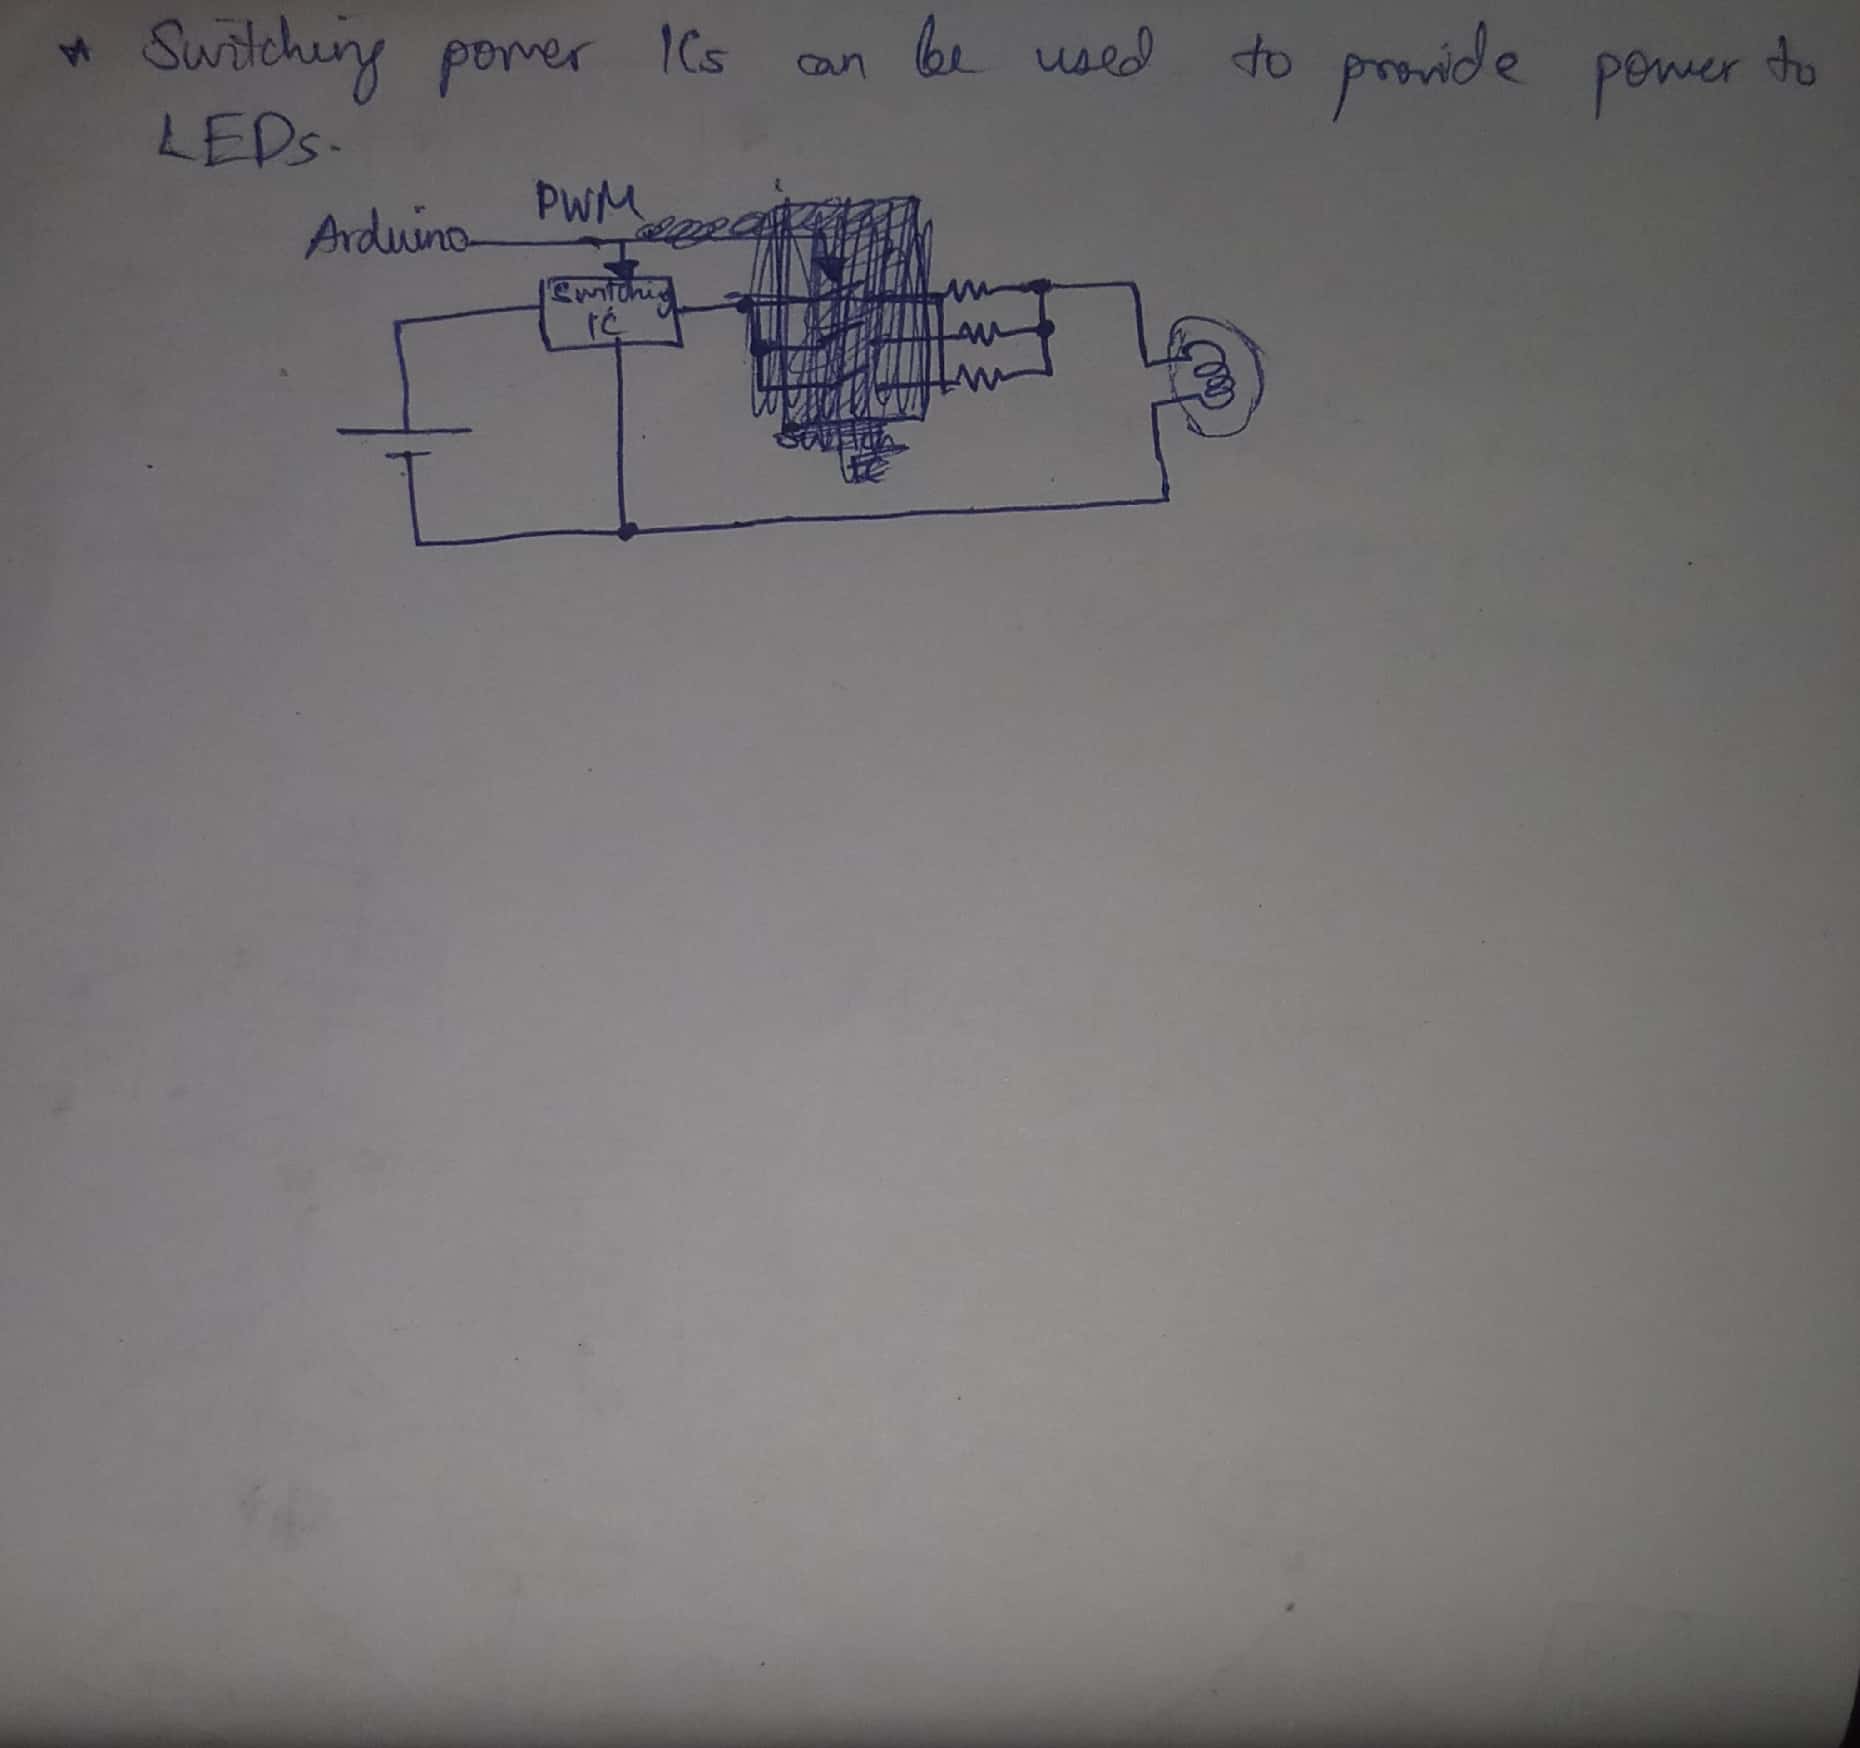 * Switching power ICs can be used to provide power to
LEDs.
PWM
Arduino
Switching
IC